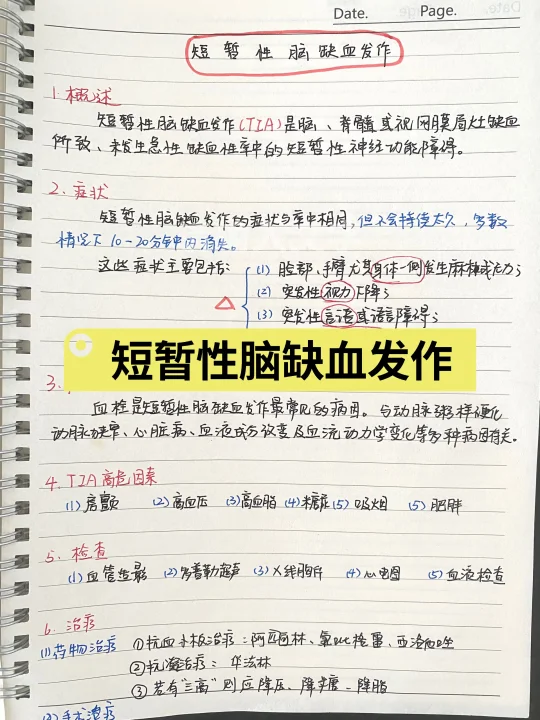 Date. Page.
短暂性脑缺血发作
1. 概述
短暂性脑缺血发作(TIA)是脑、脊髓或视网膜局灶缺血
所致、未发生急性缺血性卒中的短暂性神经功能障碍。
2. 症状
短暂性脑缺血发作的症状与卒中相同,但不会持续太久,多数
情况下10-20分钟内消失。
这些症状主要包括:
(1) 脸部、手臂尤其身体一侧发生麻木或无力;
(2) 突发性视力下降;
(3) 突发性言语或语言障碍;
短暂性脑缺血发作
3.
血栓是短暂性脑缺血发作最常见的病因。与动脉粥样硬化
动脉狭窄、心脏病、血液成分改变及血流动力学变化等多种病因有关。
4. TIA高危因素
(1) 房颤 (2) 高血压 (3) 高血脂 (4) 糖尿 (5) 吸烟 (5) 肥胖
5. 检查
(1) 血管造影 (2) 多普勒超声 (3) X线胸片 (4) 心电图 (5) 血液检查
6. 治疗
(1) 药物治疗 ①抗血小板治疗:阿匹林、氯吡格雷、西洛他唑
②抗凝治疗:华法林
③若有"三高"则应降压、降糖、降脂
(2) 手术治疗